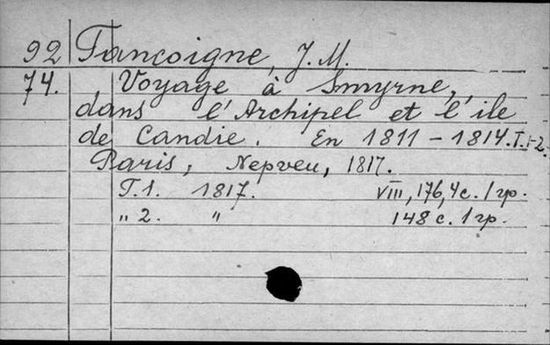 92 Tancoigne, J. M.
74. Voyage à Smyrne,
dans l'Archipel et l'ile
de Candie. En 1811 – 1814. T. 1-2.
Paris, Nepveu, 1817.
T. 1. 1817. VIII, 176, 4 c. 1 гр.
„ 2. „ 148 c. 1 гр.